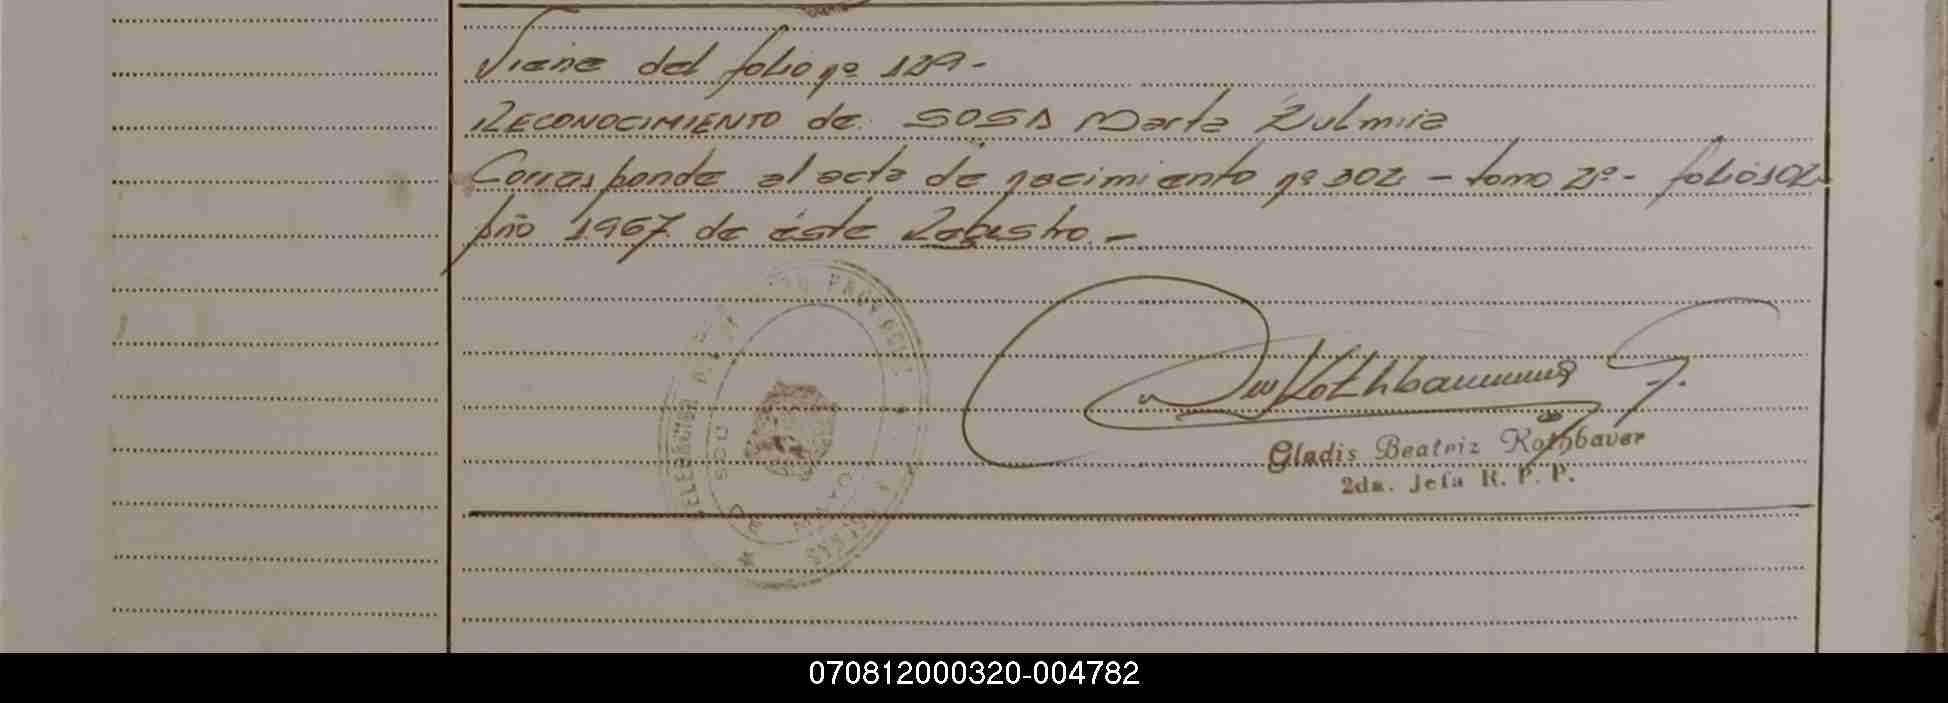 Viene del folio nº 129-
RECONOCIMIENTO de SOSA Marta Zulmira
Corresponde al acta de nacimiento nº 302 - tomo 2º - folio 102
Año 1967 de éste Registro. -
Gladis Beatriz Rothbaver
2da. Jefa R. P. P.
070812000320-004782